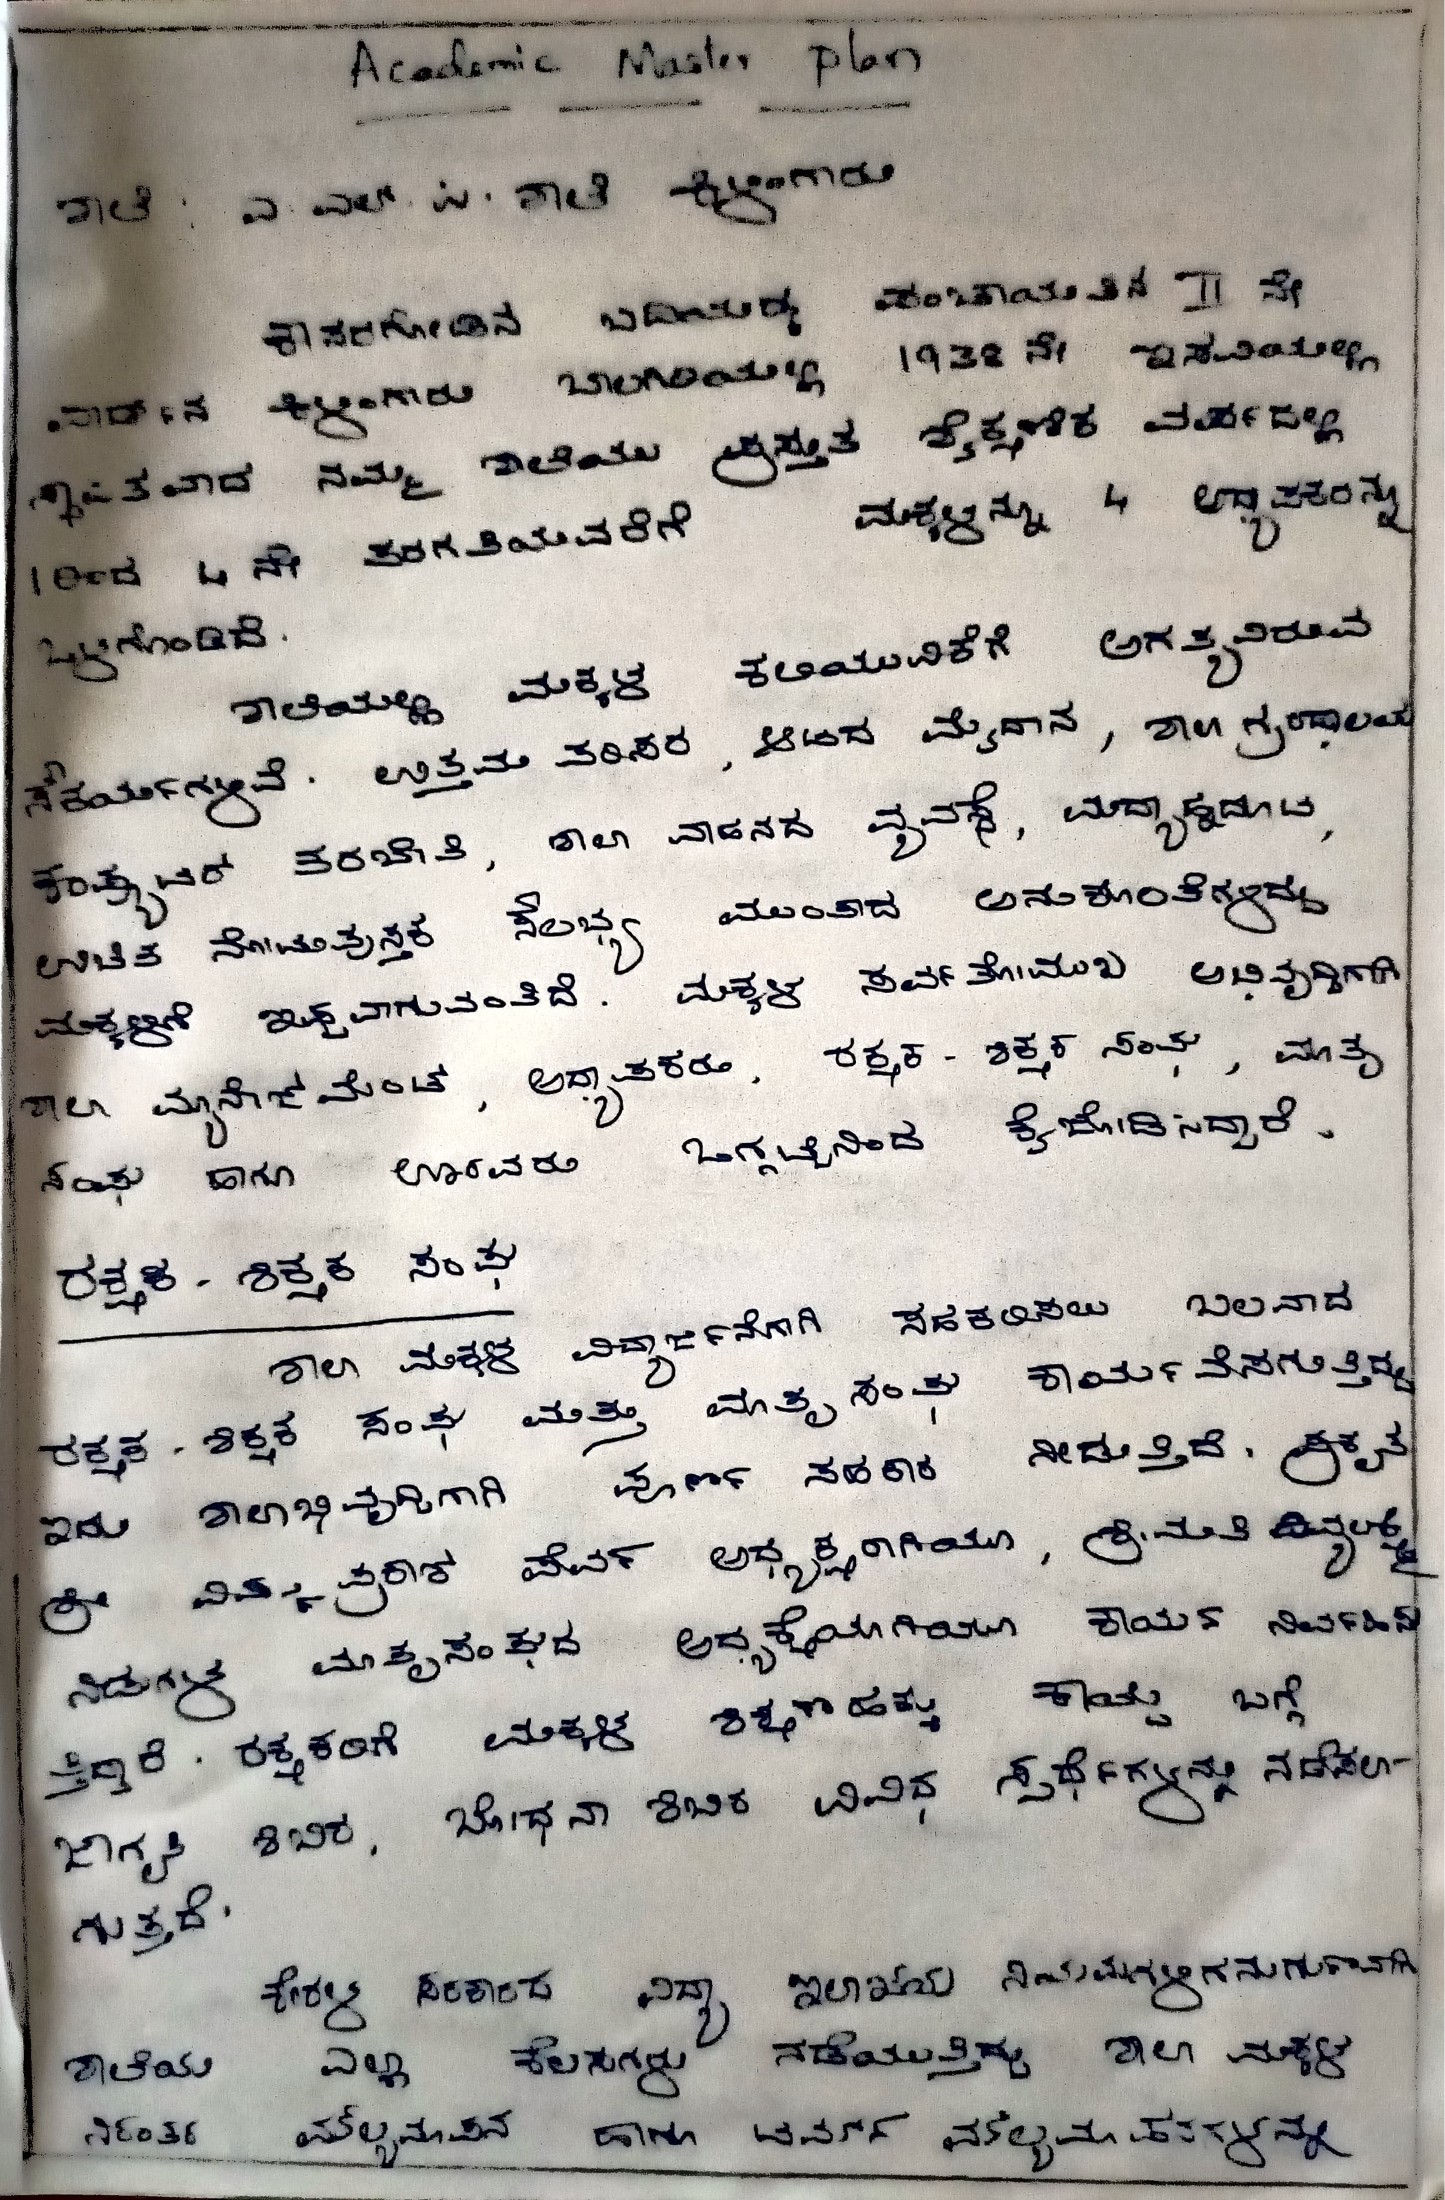 Academic Master plan
ಶಾಲೆ : ಎ. ಎಲ್. ಪಿ. ಶಾಲೆ ಕಿಳಿಂಗಾರು
ಕಾಸರಗೋಡಿನ ಬದಿಯಡ್ಕ ಪಂಚಾಯತಿನ II ನೇ
ವಾರ್ಡ್‌ನ ಕಿಳಿಂಗಾರು 1938 ನೇ ಇಸವಿಯಲ್ಲಿ
ಸ್ಥಾಪಿತವಾದ ನಮ್ಮ ಶಾಲೆಯು ಪ್ರಸ್ತುತ ಶೈಕ್ಷಣಿಕ ವರ್ಷದಲ್ಲಿ
1ರಿಂದ 4 ನೇ ತರಗತಿಯವರೆಗೆ ಮಕ್ಕಳನ್ನು 4 ಅಧ್ಯಾಪಕರನ್ನು
ಒಳಗೊಂಡಿದೆ.
ಶಾಲೆಯಲ್ಲಿ ಮಕ್ಕಳ ಕಲಿಯುವಿಕೆಗೆ ಅಗತ್ಯವಿರುವ
ಸೌಕರ್ಯಗಳಿವೆ. ಉತ್ತಮ ಪರಿಸರ, ಆಟದ ಮೈದಾನ, ಶಾಲಾ ಗ್ರಂಥಾಲಯ
ಕಂಪ್ಯೂಟರ್ ತರಬೇತಿ, ಶಾಲಾ ವಾಹನದ ವ್ಯವಸ್ಥೆ, ಮಧ್ಯಾಹ್ನದೂಟ,
ಉಚಿತ ನೋಟುಪುಸ್ತಕ ಸೌಲಭ್ಯ ಮುಂತಾದ ಅನುಕೂಲತೆಗಳಿದ್ದು
ಮಕ್ಕಳಿಗೆ ಇಷ್ಟವಾಗುವಂತಿದೆ. ಮಕ್ಕಳ ಸರ್ವತೋಮುಖ ಅಭಿವೃದ್ಧಿಗಾಗಿ
ಶಾಲಾ ಮ್ಯಾನೇಜ್‌ಮೆಂಟ್, ಅಧ್ಯಾಪಕರು, ರಕ್ಷಕ - ಶಿಕ್ಷಕ ಸಂಘ, ಮಾತೃ
ಸಂಘ ಹಾಗೂ ಊರವರು ಒಗ್ಗಟ್ಟಿನಿಂದ ಕೈಜೋಡಿಸಿದ್ದಾರೆ.
ರಕ್ಷಕ - ಶಿಕ್ಷಕ ಸಂಘ
ಶಾಲಾ ಮಕ್ಕಳ ವಿದ್ಯಾರ್ಜನೆಗಾಗಿ ಸಹಕರಿಸಲು ಬಲವಾದ
ರಕ್ಷಕ - ಶಿಕ್ಷಕ ಸಂಘ ಮತ್ತು ಮಾತೃ ಸಂಘ ಕಾರ್ಯವೆಸಗುತ್ತಿದ್ದು
ಇದು ಶಾಲಾಭಿವೃದ್ಧಿಗಾಗಿ ಪೂರ್ಣ ಸಹಕಾರ ನೀಡುತ್ತಿದೆ. ಪ್ರಕೃತ
ಶ್ರೀ ಪ್ರಕಾಶ ಪೆರ್ವ ಅಧ್ಯಕ್ಷರಾಗಿಯೂ, ಶ್ರೀಮತಿ
ನಿಡುಗಳ ಮಾತೃಸಂಘದ ಅಧ್ಯಕ್ಷೆಯಾಗಿಯೂ ಕಾರ್ಯ ನಿರ್ವಹಿಸು
ತ್ತಿದ್ದಾರೆ. ರಕ್ಷಕರಿಗೆ ಮಕ್ಕಳ ಶಿಕ್ಷಣಹಕ್ಕು ಕಾಯ್ದೆ ಬಗ್ಗೆ
ಜಾಗೃತಿ ಶಿಬಿರ, ಬೋಧನಾ ಶಿಬಿರ ವಿವಿಧ ಸ್ಪರ್ಧೆಗಳನ್ನು ನಡೆಸಲಾ-
ಗುತ್ತದೆ.
ಕೇರಳ ಸರಕಾರದ ವಿದ್ಯಾ ಇಲಾಖೆಯ ನಿಯಮಗಳಿಗನುಗುಣವಾಗಿ
ಶಾಲೆಯ ಎಲ್ಲಾ ಕೆಲಸಗಳು ನಡೆಯುತ್ತಿದ್ದು ಶಾಲಾ ಮಕ್ಕಳ
ನಿರಂತರ ಮೌಲ್ಯಮಾಪನ ಹಾಗೂ ಟರ್ಮ್ ಮೌಲ್ಯಮಾಪನಗಳನ್ನು